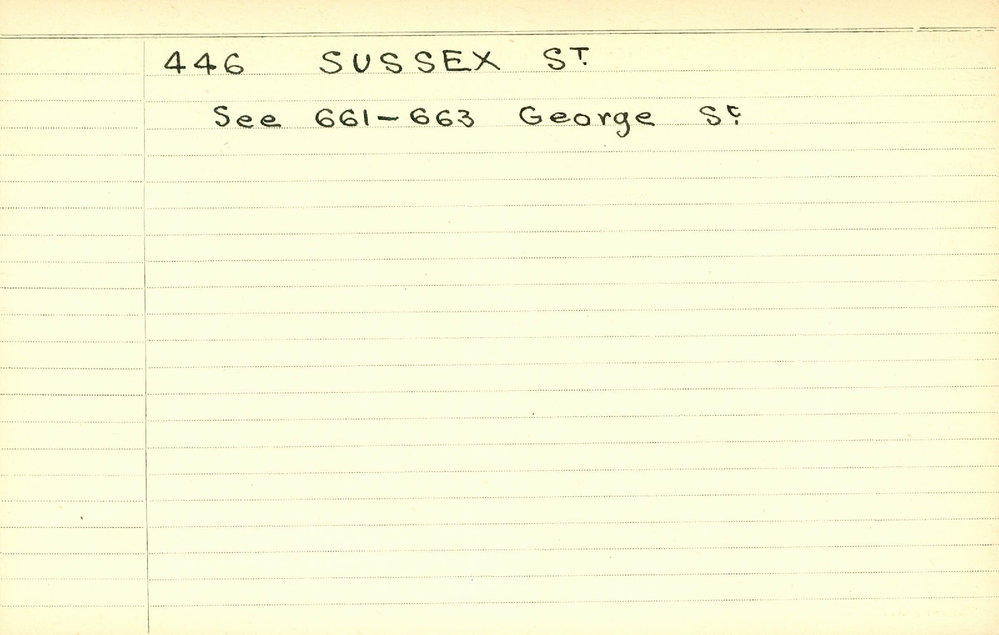 446 SUSSEX ST.
See 661-663 George St.